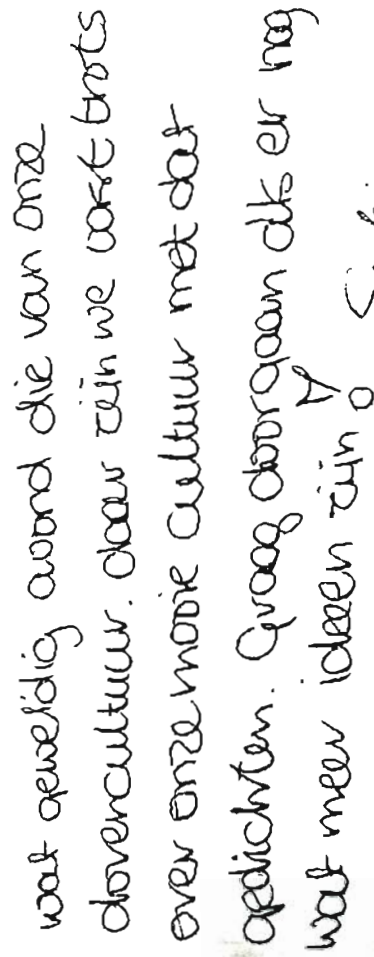 wat geweldig avond die van onze
dovencultuur. daar zijn we vast trots
over onze mooie cultuur met dat
gedichten. Graag doorgaan als er nog
wat meer ideeën zijn!